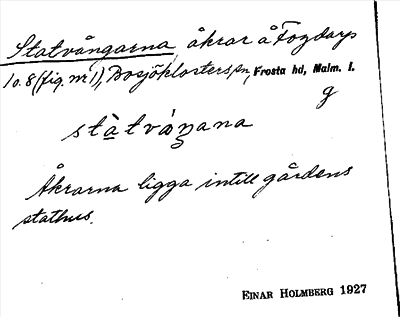 Statvångarna, åkrar å Fogdarp
10.8 (fig. nr 1), Bosjöklosters sn, Frosta hd, Malm. l.
g
stàtváŋana
Åkrarna ligga intill gårdens
stathus.
EINAR HOLMBERG 1927